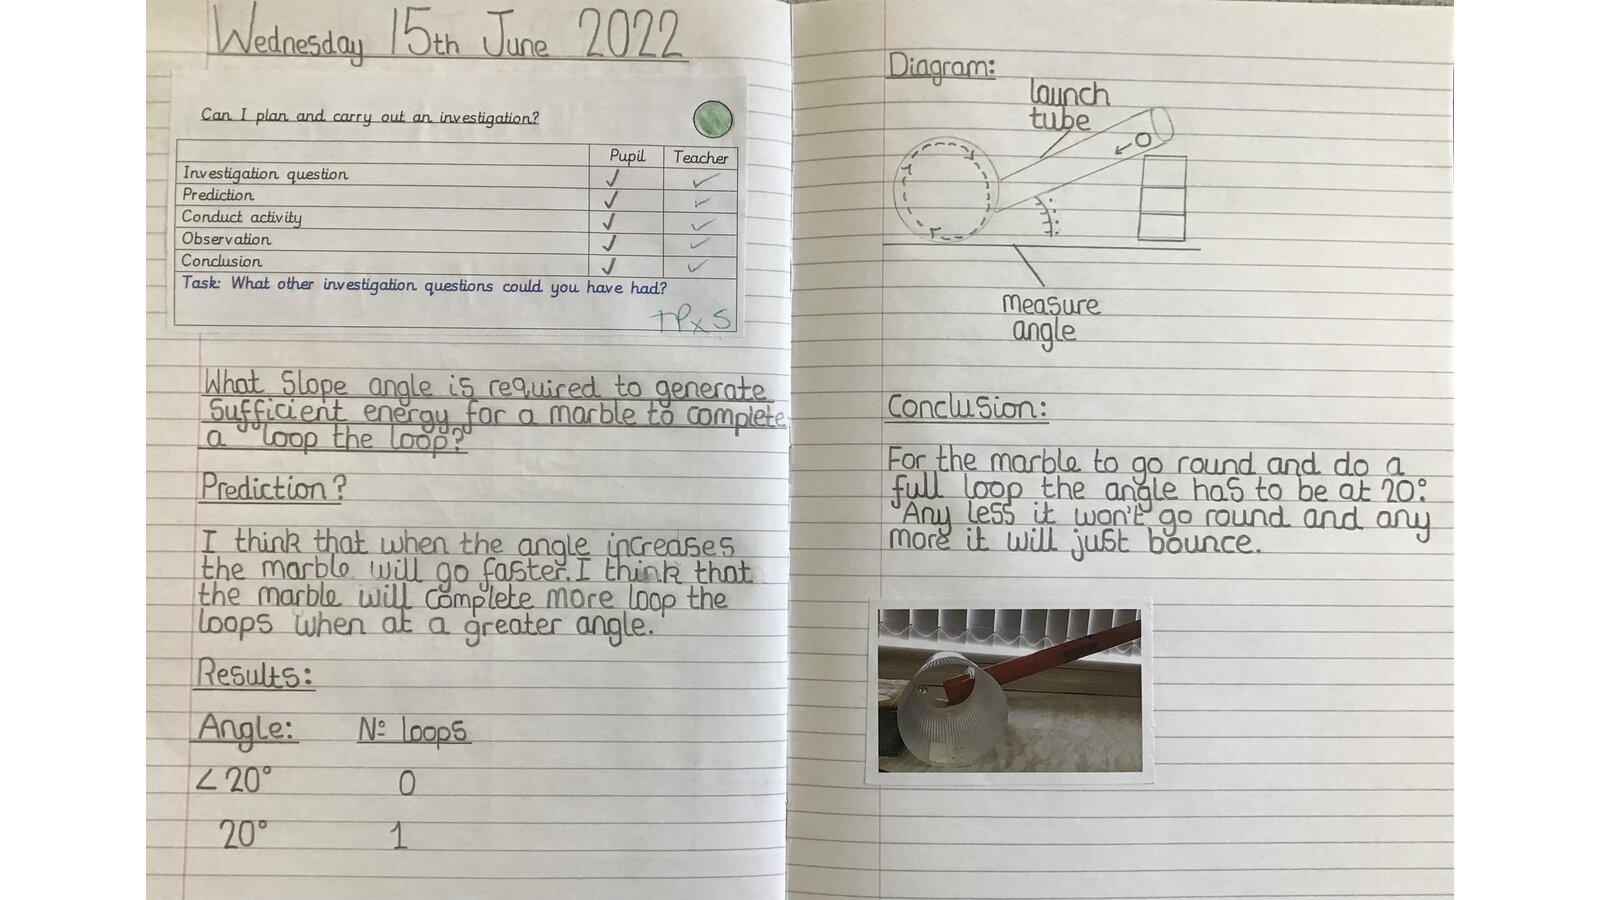 Wednesday 15th June 2022
Can I plan and carry out an investigation?
Pupil Teacher
Investigation question ✓ ✓
Prediction ✓ ✓
Conduct activity ✓ ✓
Observation ✓ ✓
Conclusion ✓ ✓
Task: What other investigation questions could you have had?
TPxS
What slope angle is required to generate
sufficient energy for a marble to complete
a "loop the loop?"
Prediction?
I think that when the angle increases
the marble will go faster. I think that
the marble will complete more loop the
loops when at a greater angle.
Results:
Angle: Nº loops
<20° 0
20° 1
Diagram:
launch
tube
measure
angle
Conclusion:
For the marble to go round and do a
full loop the angle has to be at 20°.
Any less it won't go round and any
more it will just bounce.